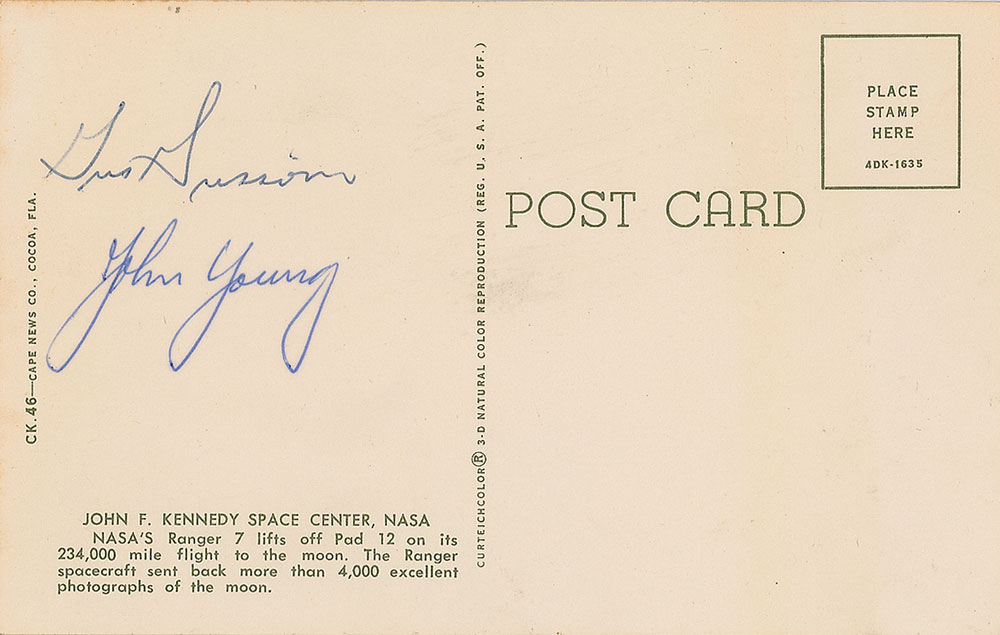 Gus Grissom
John Young
CK.46—CAPE NEWS CO., COCOA, FLA.
JOHN F. KENNEDY SPACE CENTER, NASA
NASA'S Ranger 7 lifts off Pad 12 on its
234,000 mile flight to the moon. The Ranger
spacecraft sent back more than 4,000 excellent
photographs of the moon.
CURTEICHCOLOR® 3-D NATURAL COLOR REPRODUCTION (REG. U. S. A. PAT. OFF.)
POST CARD
PLACE
STAMP
HERE
4DK-1635